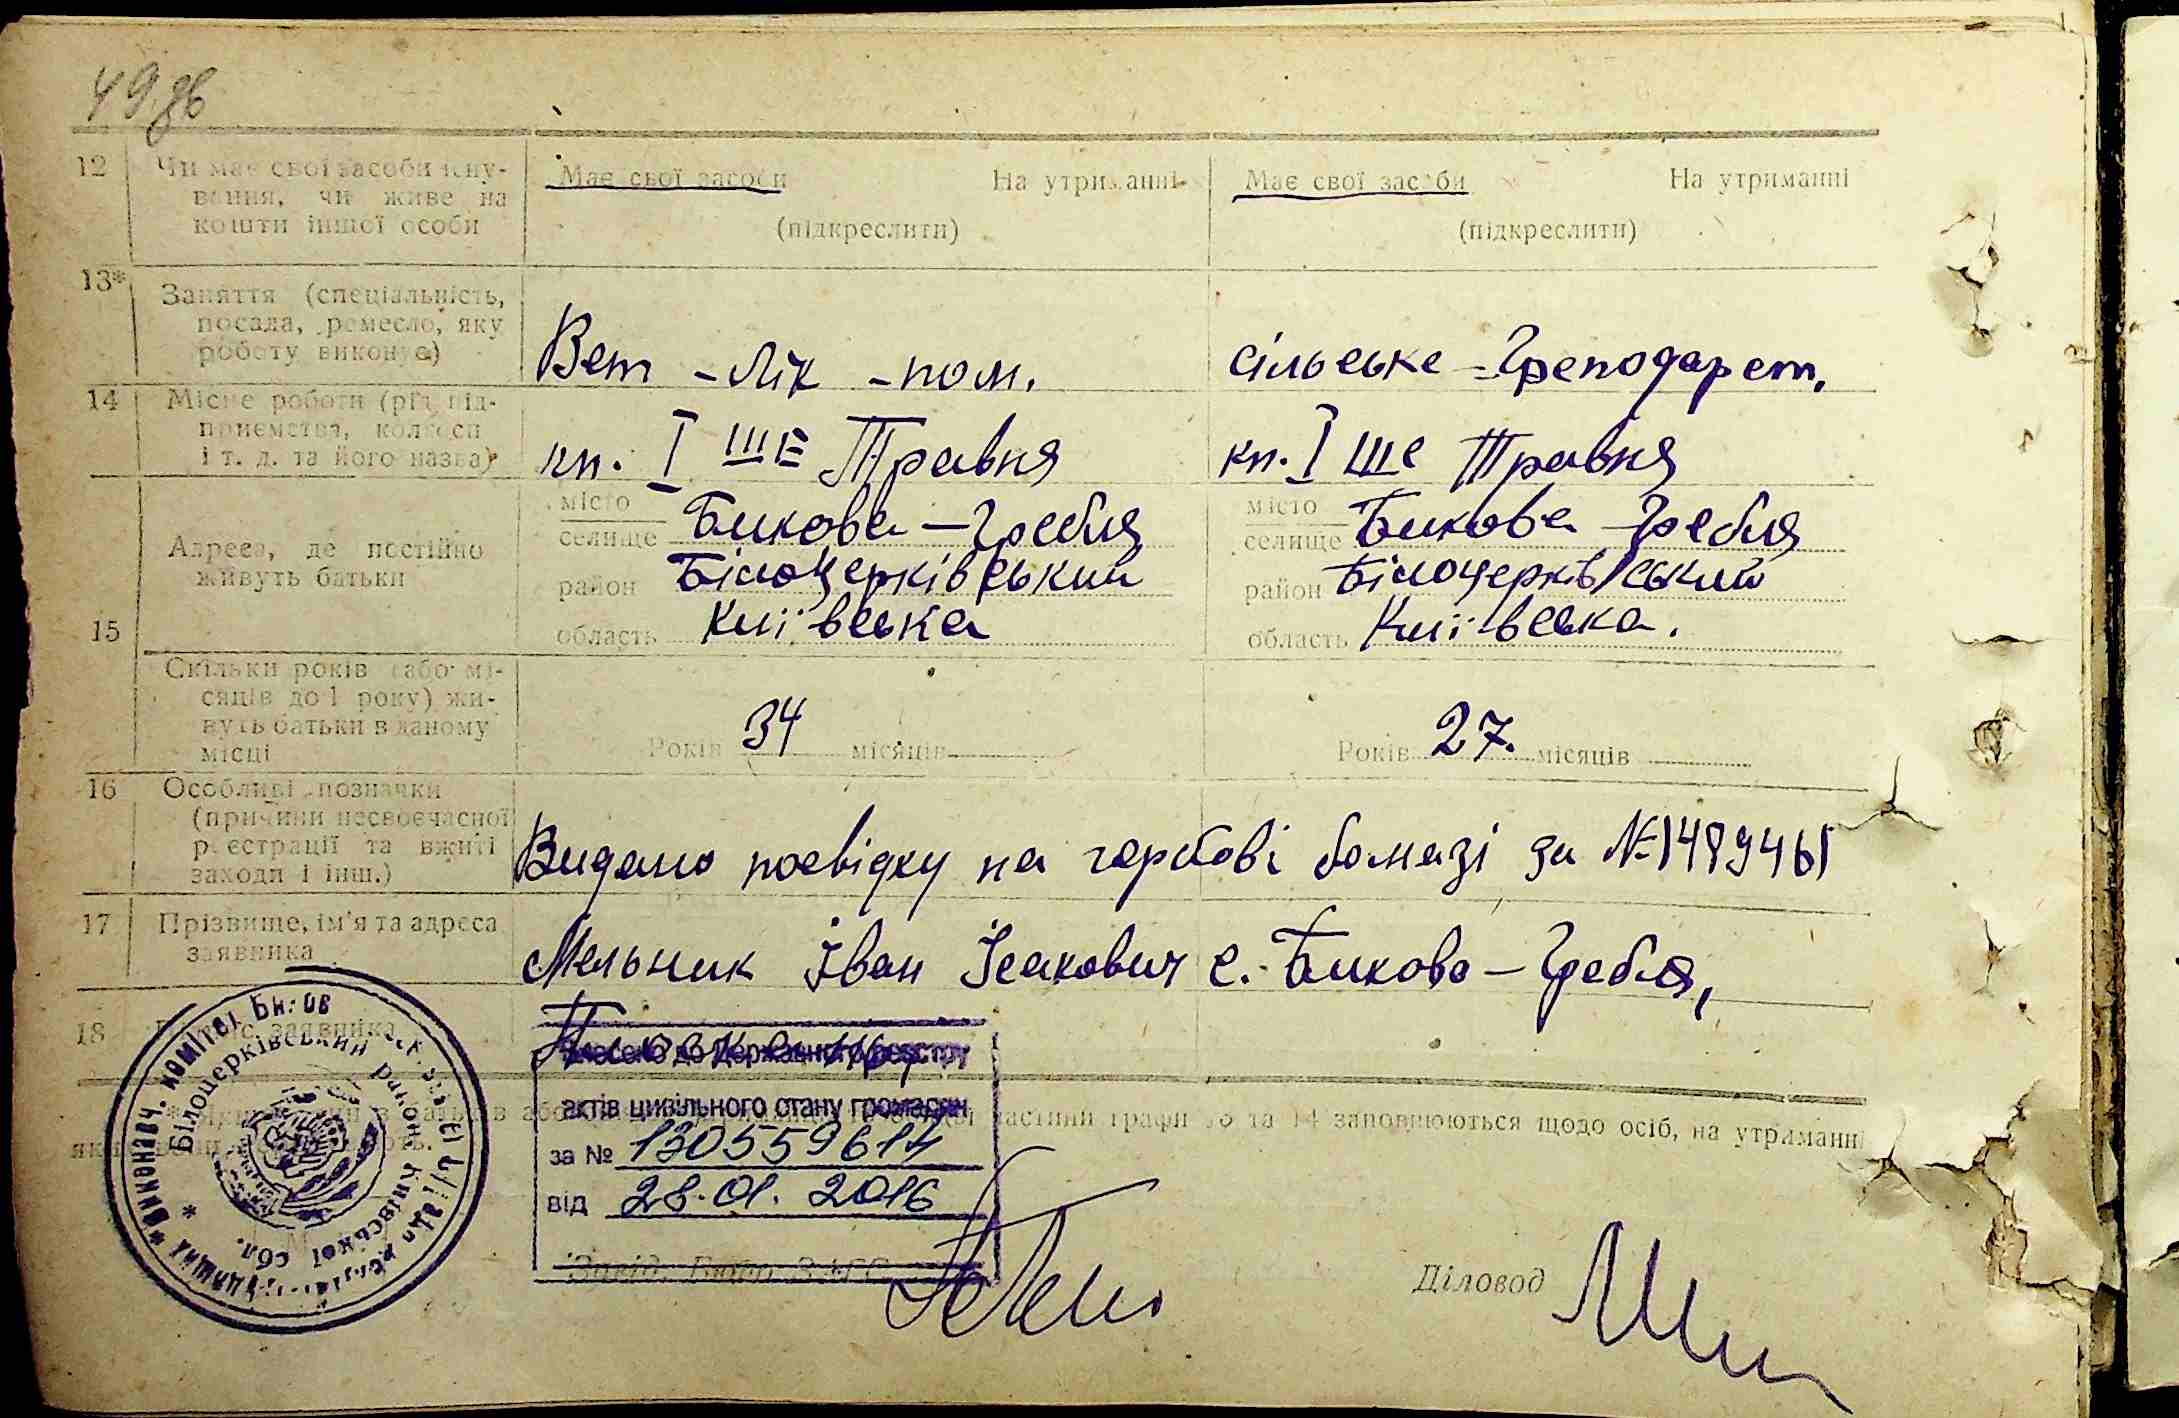 49 зв
12 Чи має свої засоби існу-
вання, чи живе на
кошти іншої особи
Має свої засоби На утриманні
(підкреслити)
Має свої засоби На утриманні
(підкреслити)
13* Заняття (спеціальність,
посада, ремесло, яку
роботу виконує)
Вет - лік - пом.
сільське -
14 Місце роботи (рід під-
приємства, колгосп
і т. д. та його назва)
кп. I ше Травня
кп. I ше Травня
15 Адреса, де постійно
живуть батьки
місто
селище Бикова - Гребля
район Білоцерківський
область Київська
місто
селище Бикова - Гребля
район Білоцерківський
область Київська.
Скільки років (або мі-
сяців до 1 року) жи-
вуть батьки в даному
місці
Років 34 місяців
Років 27. місяців
16 Особливі позначки
(причини несвоєчасної
реєстрації та вжиті
заходи і інш.)
Видано посвідку на гербові бомазі за №
17 Прізвище, ім'я та адреса
заявника
Мельник Іван Ісакович с. Бикова - Гребля,
18 Підпис заявника
Внесено до Державного реєстру
актів цивільного стану громадян
за № 130559614
від 28.01.2016
частини графи 13 та 14 заповнюються щодо осіб, на утриманні
Завід. Бюро ЗАГС
Діловод
Виконавч. комітет
Білоцерківський район Київської обл.